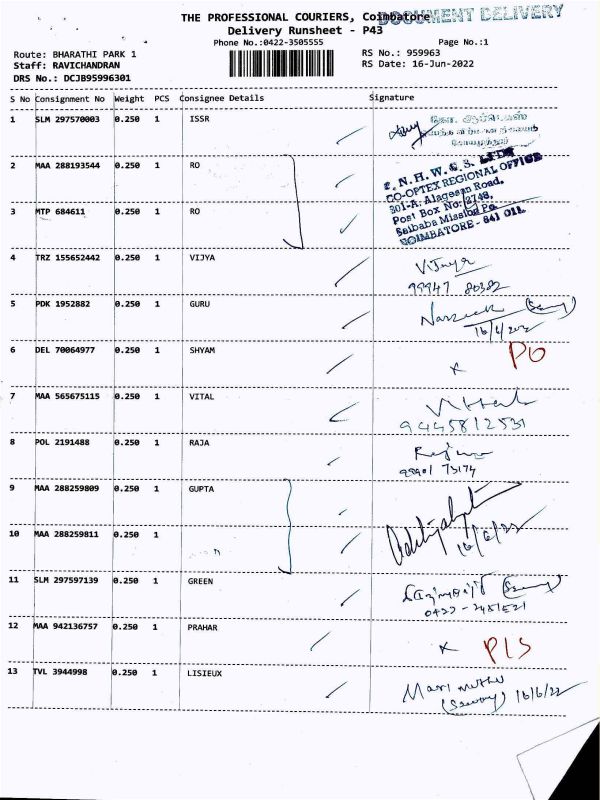 THE PROFESSIONAL COURIERS, Coimbatore
DOCUMENT DELIVERY
Delivery Runsheet - P43
Phone No.:0422-3505555
Page No.:1
Route: BHARATHI PARK 1
RS No.: 959963
Staff: RAVICHANDRAN
RS Date: 16-Jun-2022
DRS No.: DCJB95996301
S No Consignment No Weight PCS Consignee Details Signature
1 SLM 297570003 0.250 1 ISSR
2 MAA 288193544 0.250 1 RO
CO-OPTEX REGIONAL OFFICE
201-A, Alagesan Road,
3 MTP 684611 0.250 1 RO
Post Box No: 2748,
Saibaba Mission Po.
COIMBATORE - 641 011.
4 TRZ 155652442 0.250 1 VIJYA
99947 80382
5 PDK 1952882 0.250 1 GURU
6 DEL 70064977 0.250 1 SHYAM
x PO
7 MAA 565675115 0.250 1 VITAL
9445812531
8 POL 2191488 0.250 1 RAJA
9 MAA 288259809 0.250 1 GUPTA
10 MAA 288259811 0.250 1
16/6/22
11 SLM 297597139 0.250 1 GREEN
12 MAA 942136757 0.250 1 PRAHAR
x P/S
13 TVL 3944998 0.250 1 LISIEUX
Mari muthu
16/6/22